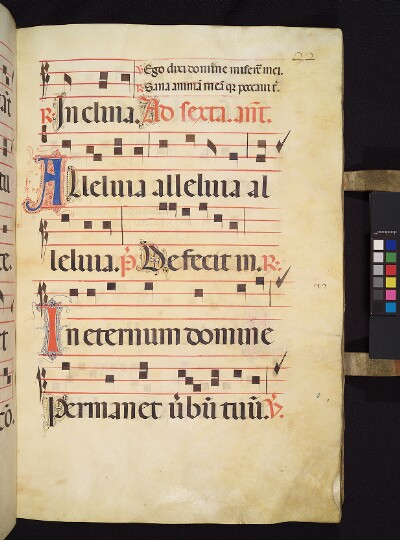 22
℣ Ego dixi domine miserē mei.
℟ Sana animā meā qr peccaui t̄.
℟. Inclina. Ad sexta. añt.
Alleluia alleluia al
leluia. p̄. Defecit in. ℟:
In eternum domine
permanet ūbū tuū. ℣.